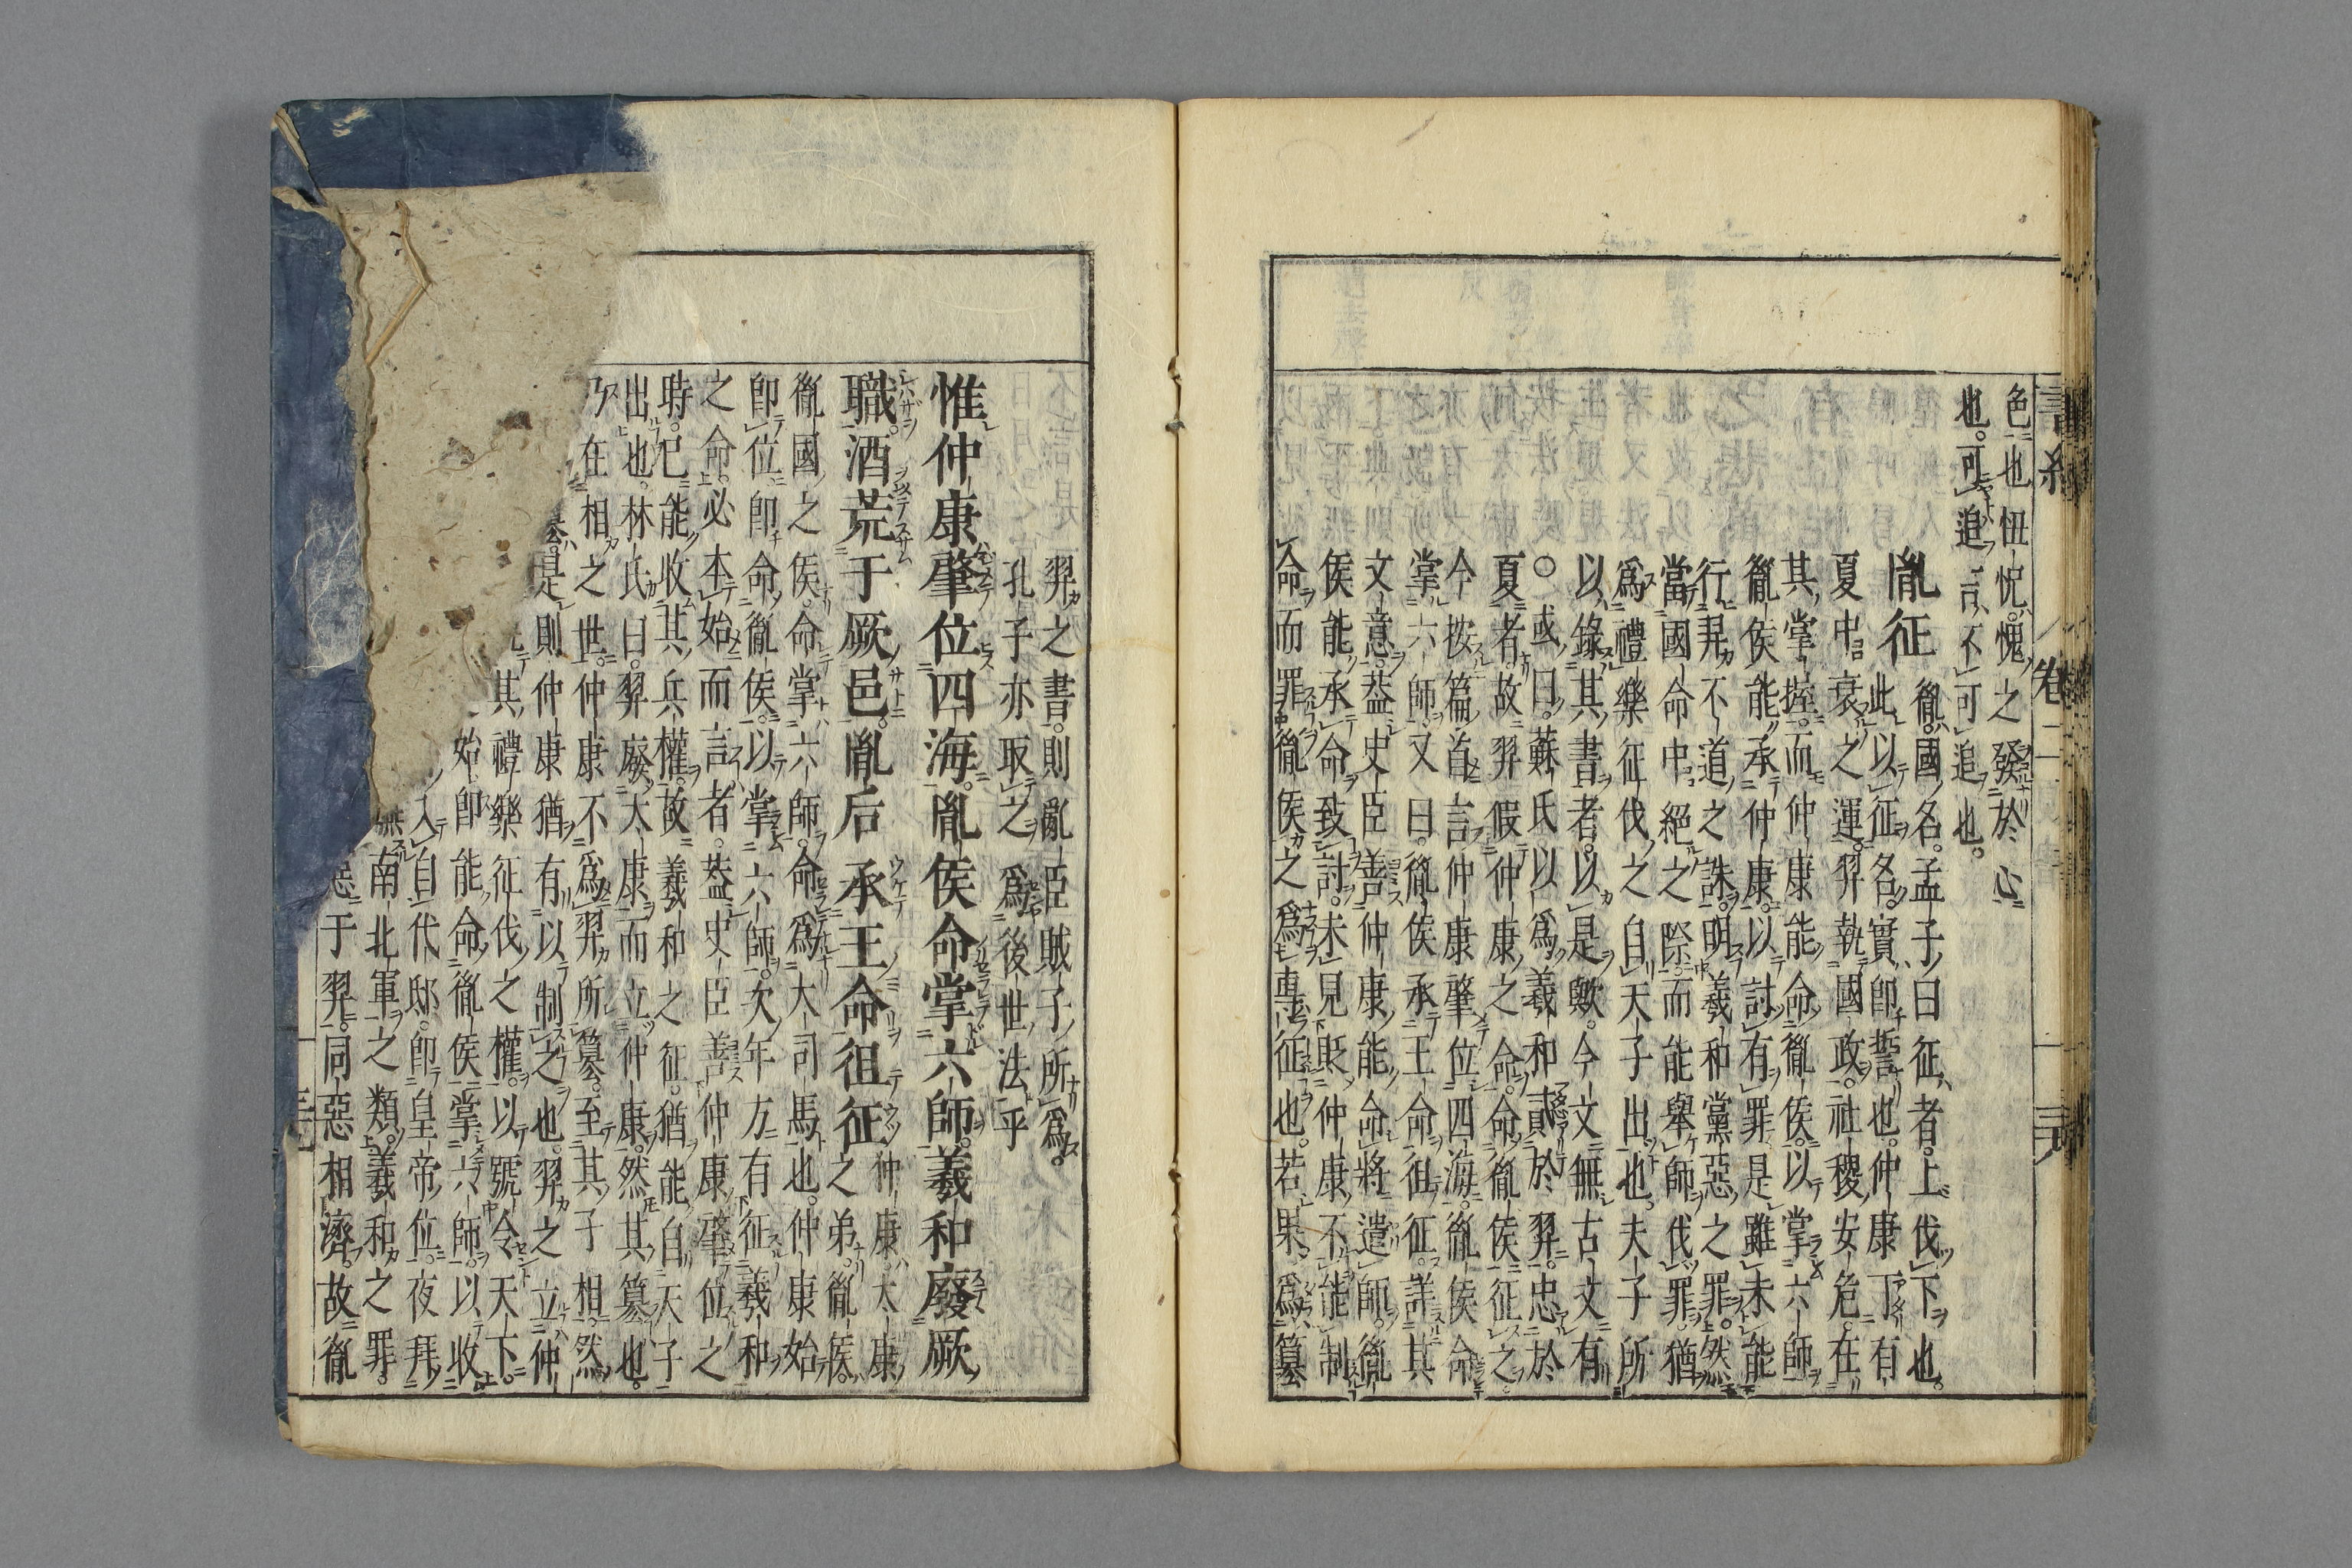 色也忸怩愧之發於心
也可追言不可追也
胤征
胤國名孟子曰征者上伐下也
此以征名實即誓也仲康丁有
夏中衰之運羿執國政社稷安危在
其掌握而仲康能命胤侯以掌六師
胤侯能承仲康以討有罪是雖未能
行羿不道之誅明羲和黨惡之罪然
當國命中絶之際而能舉師伐罪猶
爲禮樂征伐之自天子出也夫子所
以錄其書者以是歟今文無古文有
○或曰蘇氏以爲羲和貳於羿忠於
夏者故羿假仲康之命命胤侯征之
今按篇首言仲康肇位四海胤侯命
掌六師又曰胤侯承王命徂征詳其
文意葢史臣善仲康能命將遣師胤
侯能承命致討未見貶仲康不能制
命而罪胤侯之爲專征也若果爲簒
羿之書則亂臣賊子所爲
孔子亦取之爲後世法乎
惟仲康肇位四海胤侯命掌六師羲和廢厥
職酒荒于厥邑胤后承王命徂征
仲康太康
之弟胤侯
胤國之侯命掌六師命爲大司馬也仲康始
即位即命胤侯以掌六師次年方有征羲和
之命必本始而言者葢史臣善仲康肇位之
時已能收其兵權故羲和之征猶能自天子
出也林氏曰羿廢太康而立仲康然其簒也
乃在相之世仲康不爲羿所簒至其子相然
是則仲康猶有以制之也羿之立仲
其禮樂征伐之權以號令天下
始即能命胤侯掌六師以收
入自代邸即皇帝位夜拜
南北軍之類羲和之罪
惡于羿同惡相濟故胤
書經 卷二